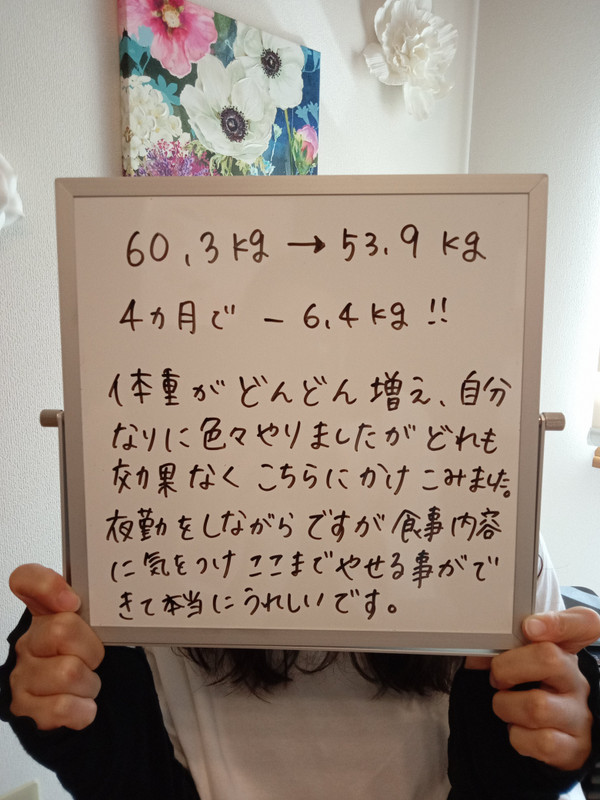 60.3kg→53.9kg
4カ月で −6.4kg!!
体重がどんどん増え、自分
なりに色々やりましたがどれも
効果なくこちらにかけこみました。
夜勤をしながらですが食事内容
に気をつけここまでやせる事がで
きて本当にうれしいです。